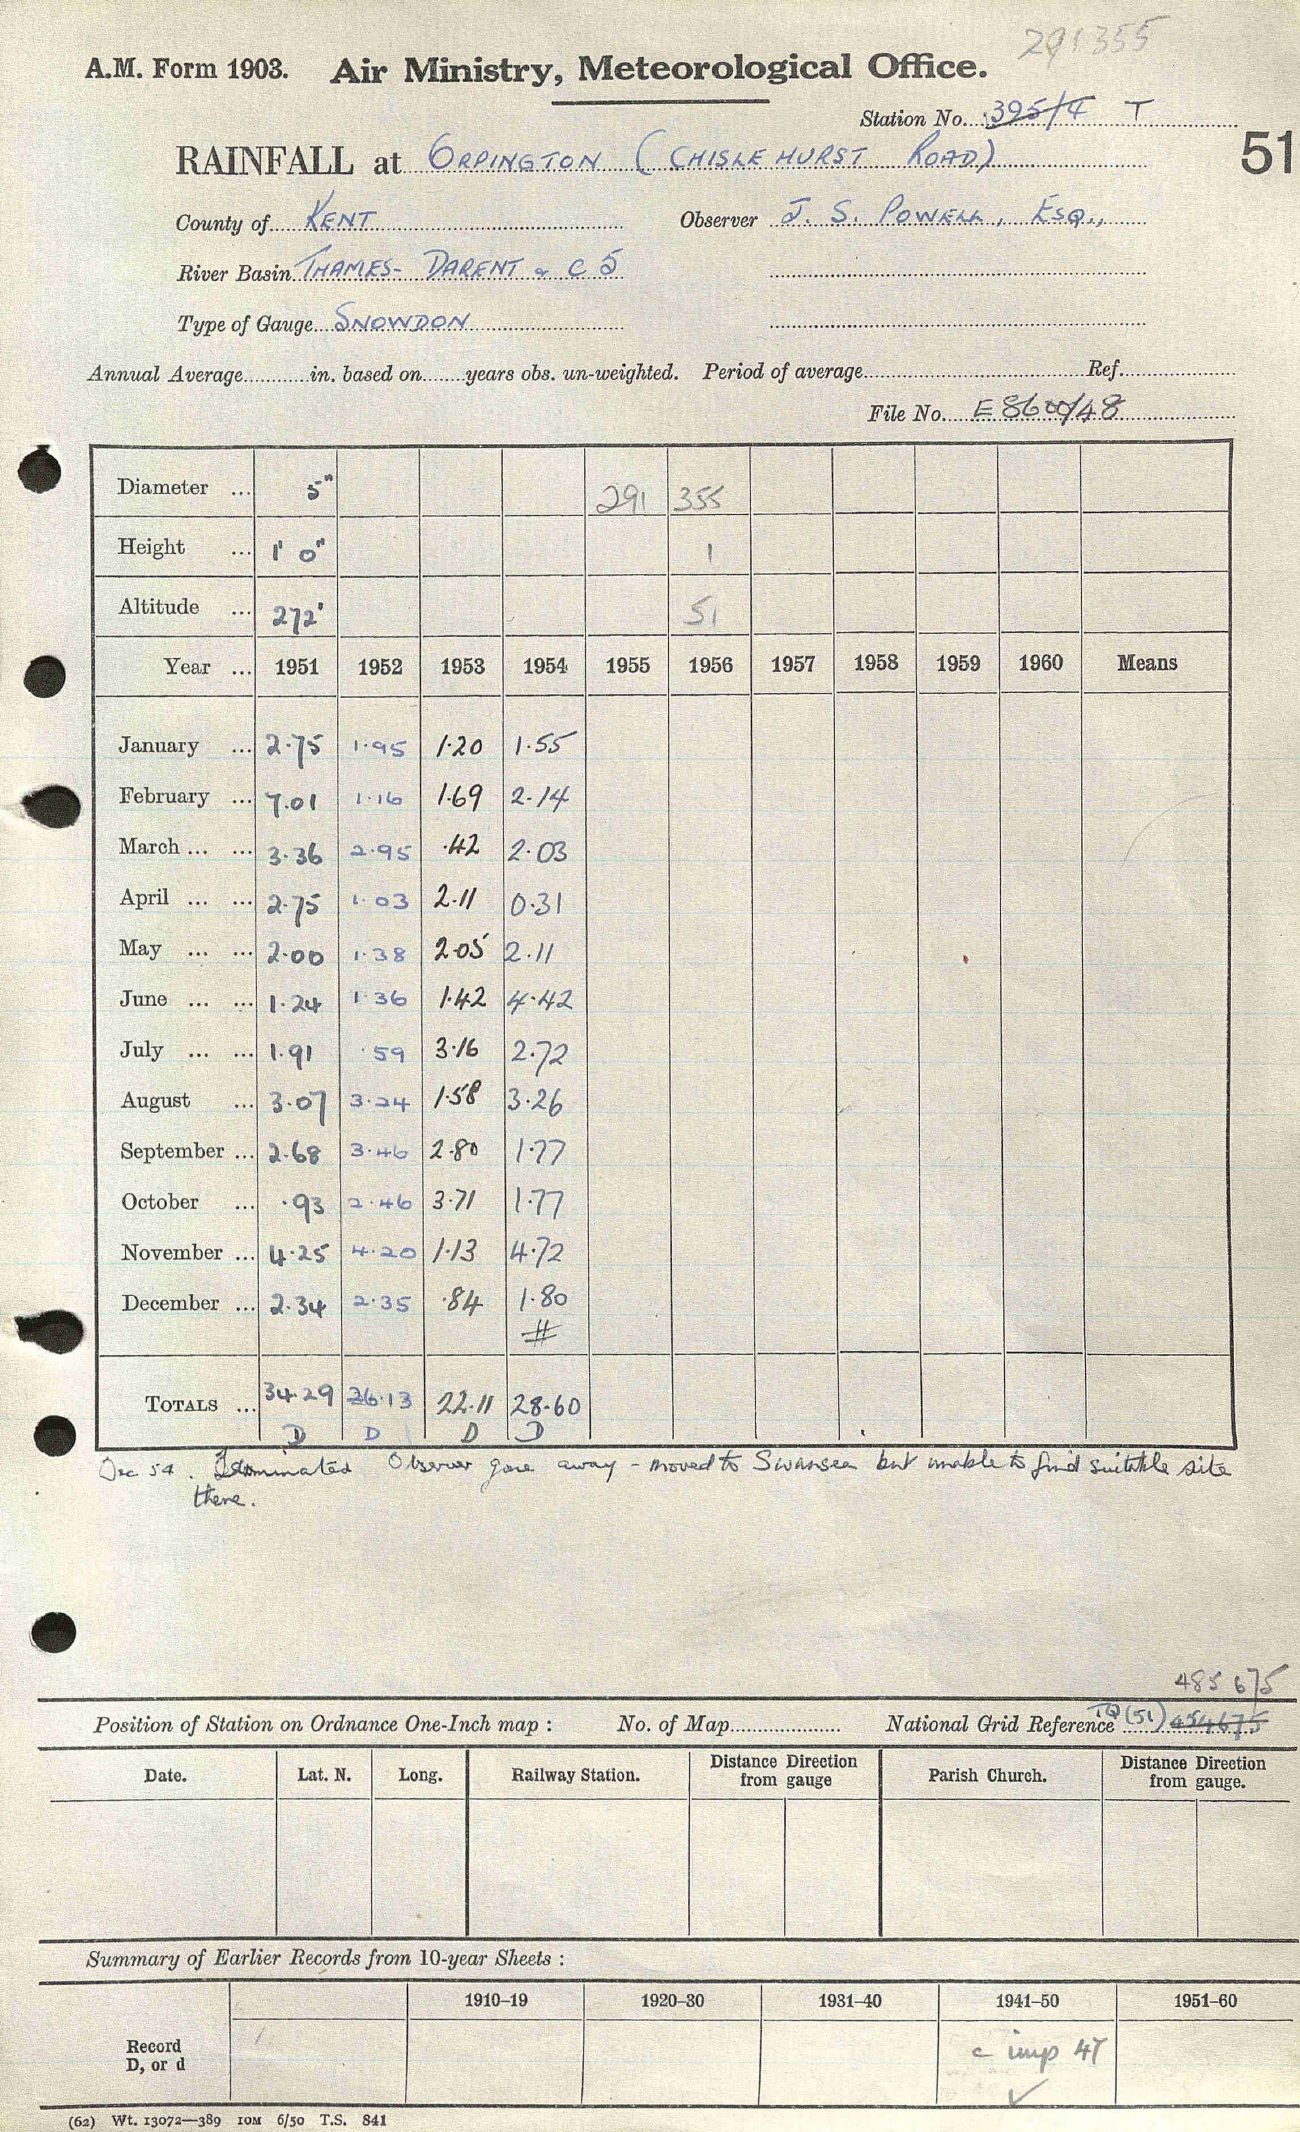 291355
A.M. Form 1903. Air Ministry, Meteorological Office.
Station No. 395/4 T
51
RAINFALL at ORPINGTON (CHISLEHURST ROAD)
County of KENT Observer J. S. POWELL, ESQ.,
River Basin THAMES- DARENT & C 5
Type of Gauge SNOWDON
Annual Average in. based on years obs. un-weighted. Period of average Ref.
File No. E8600/48
Diameter ... 5" 291 355
Height ... 1' 0" 1
Altitude ... 272' 51
Year ... 1951 1952 1953 1954 1955 1956 1957 1958 1959 1960 Means
January ... 2.75 1.95 1.20 1.55
February ... 7.01 1.16 1.69 2.14
March ... ... 3.36 2.95 .42 2.03
April ... ... 2.75 1.03 2.11 0.31
May ... ... 2.00 1.38 2.05 2.11
June ... ... 1.24 1.36 1.42 4.42
July ... ... 1.91 .59 3.16 2.72
August ... 3.07 3.24 1.58 3.26
September ... 2.68 3.46 2.80 1.77
October ... .93 2.46 3.71 1.77
November ... 4.25 4.20 1.13 4.72
December ... 2.34 2.35 .84 1.80
#
TOTALS ... 34.29 26.13 22.11 28.60
D D D D
Dec 54. Terminated Observer gone away - moved to Swansea but unable to find suitable site
there.
485 675
Position of Station on Ordnance One-Inch map : No. of Map National Grid Reference TQ (51) 454675
Date. Lat. N. Long. Railway Station. Distance Direction from gauge Parish Church. Distance Direction from gauge.
Summary of Earlier Records from 10-year Sheets :
1910–19 1920–30 1931–40 1941–50 1951–60
Record
D, or d
c imp 47
✓
(62) Wt. 13072—389 10M 6/50 T.S. 841